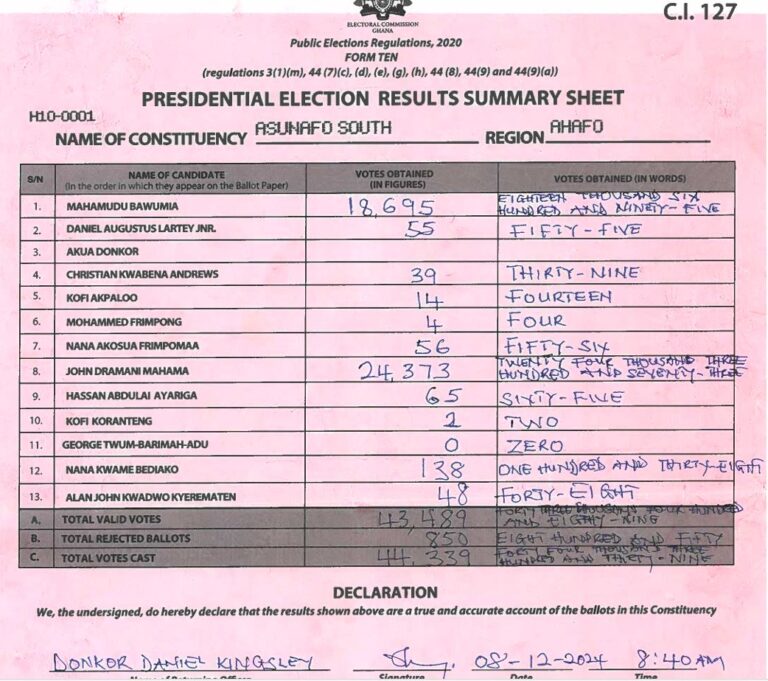 C.I. 127
ELECTORAL COMMISSION
GHANA
Public Elections Regulations, 2020
FORM TEN
(regulations 3(1)(m), 44 (7)(c), (d), (e), (g), (h), 44 (8), 44(9) and 44(9)(a))
PRESIDENTIAL ELECTION RESULTS SUMMARY SHEET
H10-0001
NAME OF CONSTITUENCY ASUNAFO SOUTH REGION AHAFO
S/N NAME OF CANDIDATE (In the order in which they appear on the Ballot Paper) VOTES OBTAINED (IN FIGURES) VOTES OBTAINED (IN WORDS)
1. MAHAMUDU BAWUMIA 18,695 EIGHTEEN THOUSAND SIX HUNDRED AND NINETY-FIVE
2. DANIEL AUGUSTUS LARTEY JNR. 55 FIFTY-FIVE
3. AKUA DONKOR
4. CHRISTIAN KWABENA ANDREWS 39 THIRTY-NINE
5. KOFI AKPALOO 14 FOURTEEN
6. MOHAMMED FRIMPONG 4 FOUR
7. NANA AKOSUA FRIMPOMAA 56 FIFTY-SIX
8. JOHN DRAMANI MAHAMA 24,373 TWENTY FOUR THOUSAND THREE HUNDRED AND SEVENTY-THREE
9. HASSAN ABDULAI AYARIGA 65 SIXTY-FIVE
10. KOFI KORANTENG 2 TWO
11. GEORGE TWUM-BARIMAH-ADU 0 ZERO
12. NANA KWAME BEDIAKO 138 ONE HUNDRED AND THIRTY-EIGHT
13. ALAN JOHN KWADWO KYEREMATEN 48 FORTY-EIGHT
A. TOTAL VALID VOTES 43,489 FORTY THREE THOUSAND FOUR HUNDRED AND EIGHTY-NINE
B. TOTAL REJECTED BALLOTS 850 EIGHT HUNDRED AND FIFTY
C. TOTAL VOTES CAST 44,339 FORTY FOUR THOUSAND THREE HUNDRED AND THIRTY-NINE
DECLARATION
We, the undersigned, do hereby declare that the results shown above are a true and accurate account of the ballots in this Constituency
DONKOR DANIEL KINGSLEY 08-12-2024 8:40AM
Name of Returning Officer Signature Date Time